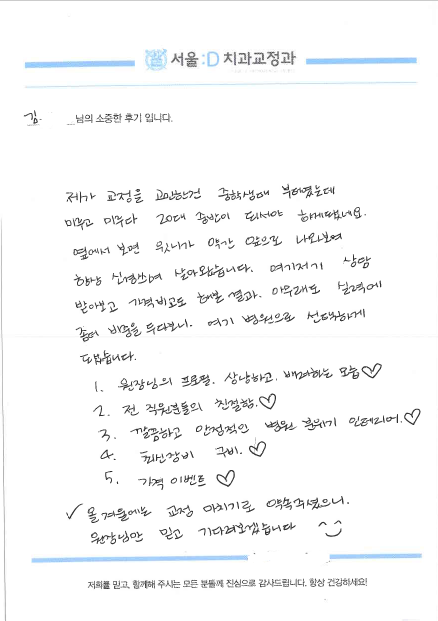 서울:D 치과교정과
김. 님의 소중한 후기 입니다.
제가 교정을 고민한건 중학생때 부터였는데
미루고 미루다 20대 중반이 되서야 하게되었네요.
옆에서 보면 윗니가 약간 앞으로 나와보여
항상 신경쓰여 살아왔습니다. 여기저기 상담
받아보고 가격비교도 해본 결과. 아무래도 실력에
좀더 비중을 두다보니. 여기 병원으로 선택하게
되었습니다.
1. 원장님의 프로필. 상냥하고. 배려하는 모습♡
2. 전 직원분들의 친절함.♡
3. 깔끔하고 안정적인 병원 분위기 인테리어.♡
4. 최신장비 구비.♡
5. 가격 이벤트 ♡
✓ 올겨울에는 교정 마치기로 약속주셨으니.
원장님만 믿고 기다려보겠습니다
저희를 믿고, 함께해 주시는 모든 분들께 진심으로 감사드립니다. 항상 건강하세요!